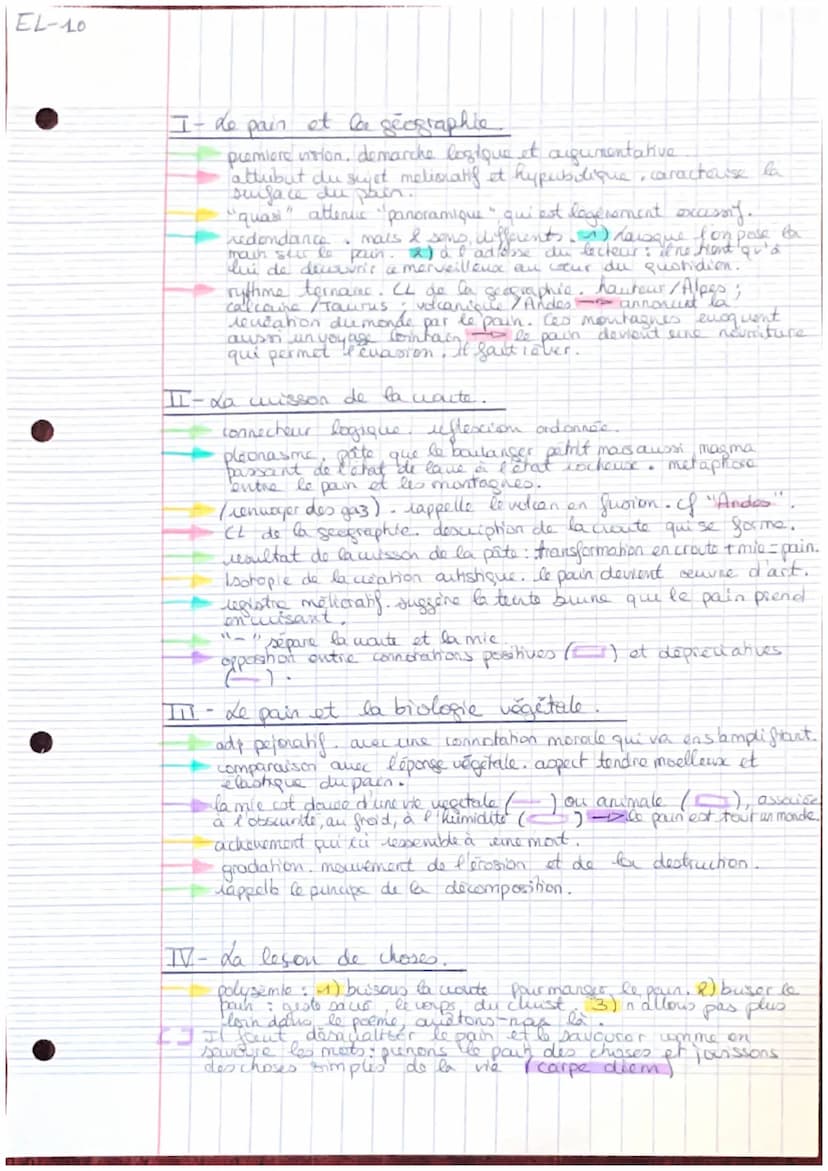 EL-10
I- Le pain et la géographie.
première vision. démarche logique et argumentative.
attribut du sujet mélioratif et hyperbolique, caractérise la
surface du pain.
"quasi" atténue "panoramique" qui est légèrement excessif.
redondance. mais 2 sens différents. 1) lorsque l'on pose la
main sur le pain. 2) à l'adresse du lecteur: il ne tient qu'à
lui de découvrir le merveilleux au cœur du quotidien.
rythme ternaire. CL de la géographie. hauteur/Alpes;
calcaire/Taurus; volcanique/Andes → annoncent la
création du monde par le pain. Ces montagnes évoquent
aussi un voyage lointain → le pain devient une nourriture
qui permet l'évasion. Il fait rêver.
II- La cuisson de la croute.
connecteur logique. réflexion ordonnée.
pléonasme. pâte que le boulanger pétrit mais aussi magma
passant de l'état de lave à l'état rocheux. métaphore
entre le pain et les montagnes.
(renvoyer des gaz). rappelle le volcan en fusion. cf "Andes".
CL de la géographie. description de la croute qui se forme.
résultat de la cuisson de la pâte: transformation en croute + mie = pain.
Isotopie de la création artistique. le pain devient œuvre d'art.
registre mélioratif. suggère la teinte brune que le pain prend
en cuisant.
"-" sépare la croute et la mie.
opposition entre connotations positives ( ) et dépréciatives
( ).
III- Le pain et la biologie végétale.
adj péjoratif. avec une connotation morale qui va en s'amplifiant.
comparaison avec l'éponge végétale. aspect tendre moelleux et
élastique du pain.
la mie est douée d'une vie végétale ( ) ou animale ( ), associée
à l'obscurité, au froid, à l'humidité ( ) → le pain est tout un monde.
achèvement qui ici ressemble à une mort.
gradation. mouvement de l'érosion et de la destruction.
rappelle le principe de la décomposition.
IV- La leçon de choses.
polysémie: 1) brisons la croute pour manger le pain. 2) briser le
pain: geste sacré, le corps du christ. 3) n'allons pas plus
loin dans le poème, arrêtons-nous là.
[ ] Il faut désacraliser le pain et le savourer comme on
savoure les mots: prenons le parti des choses et jouissons
des choses simples de la vie (carpe diem)